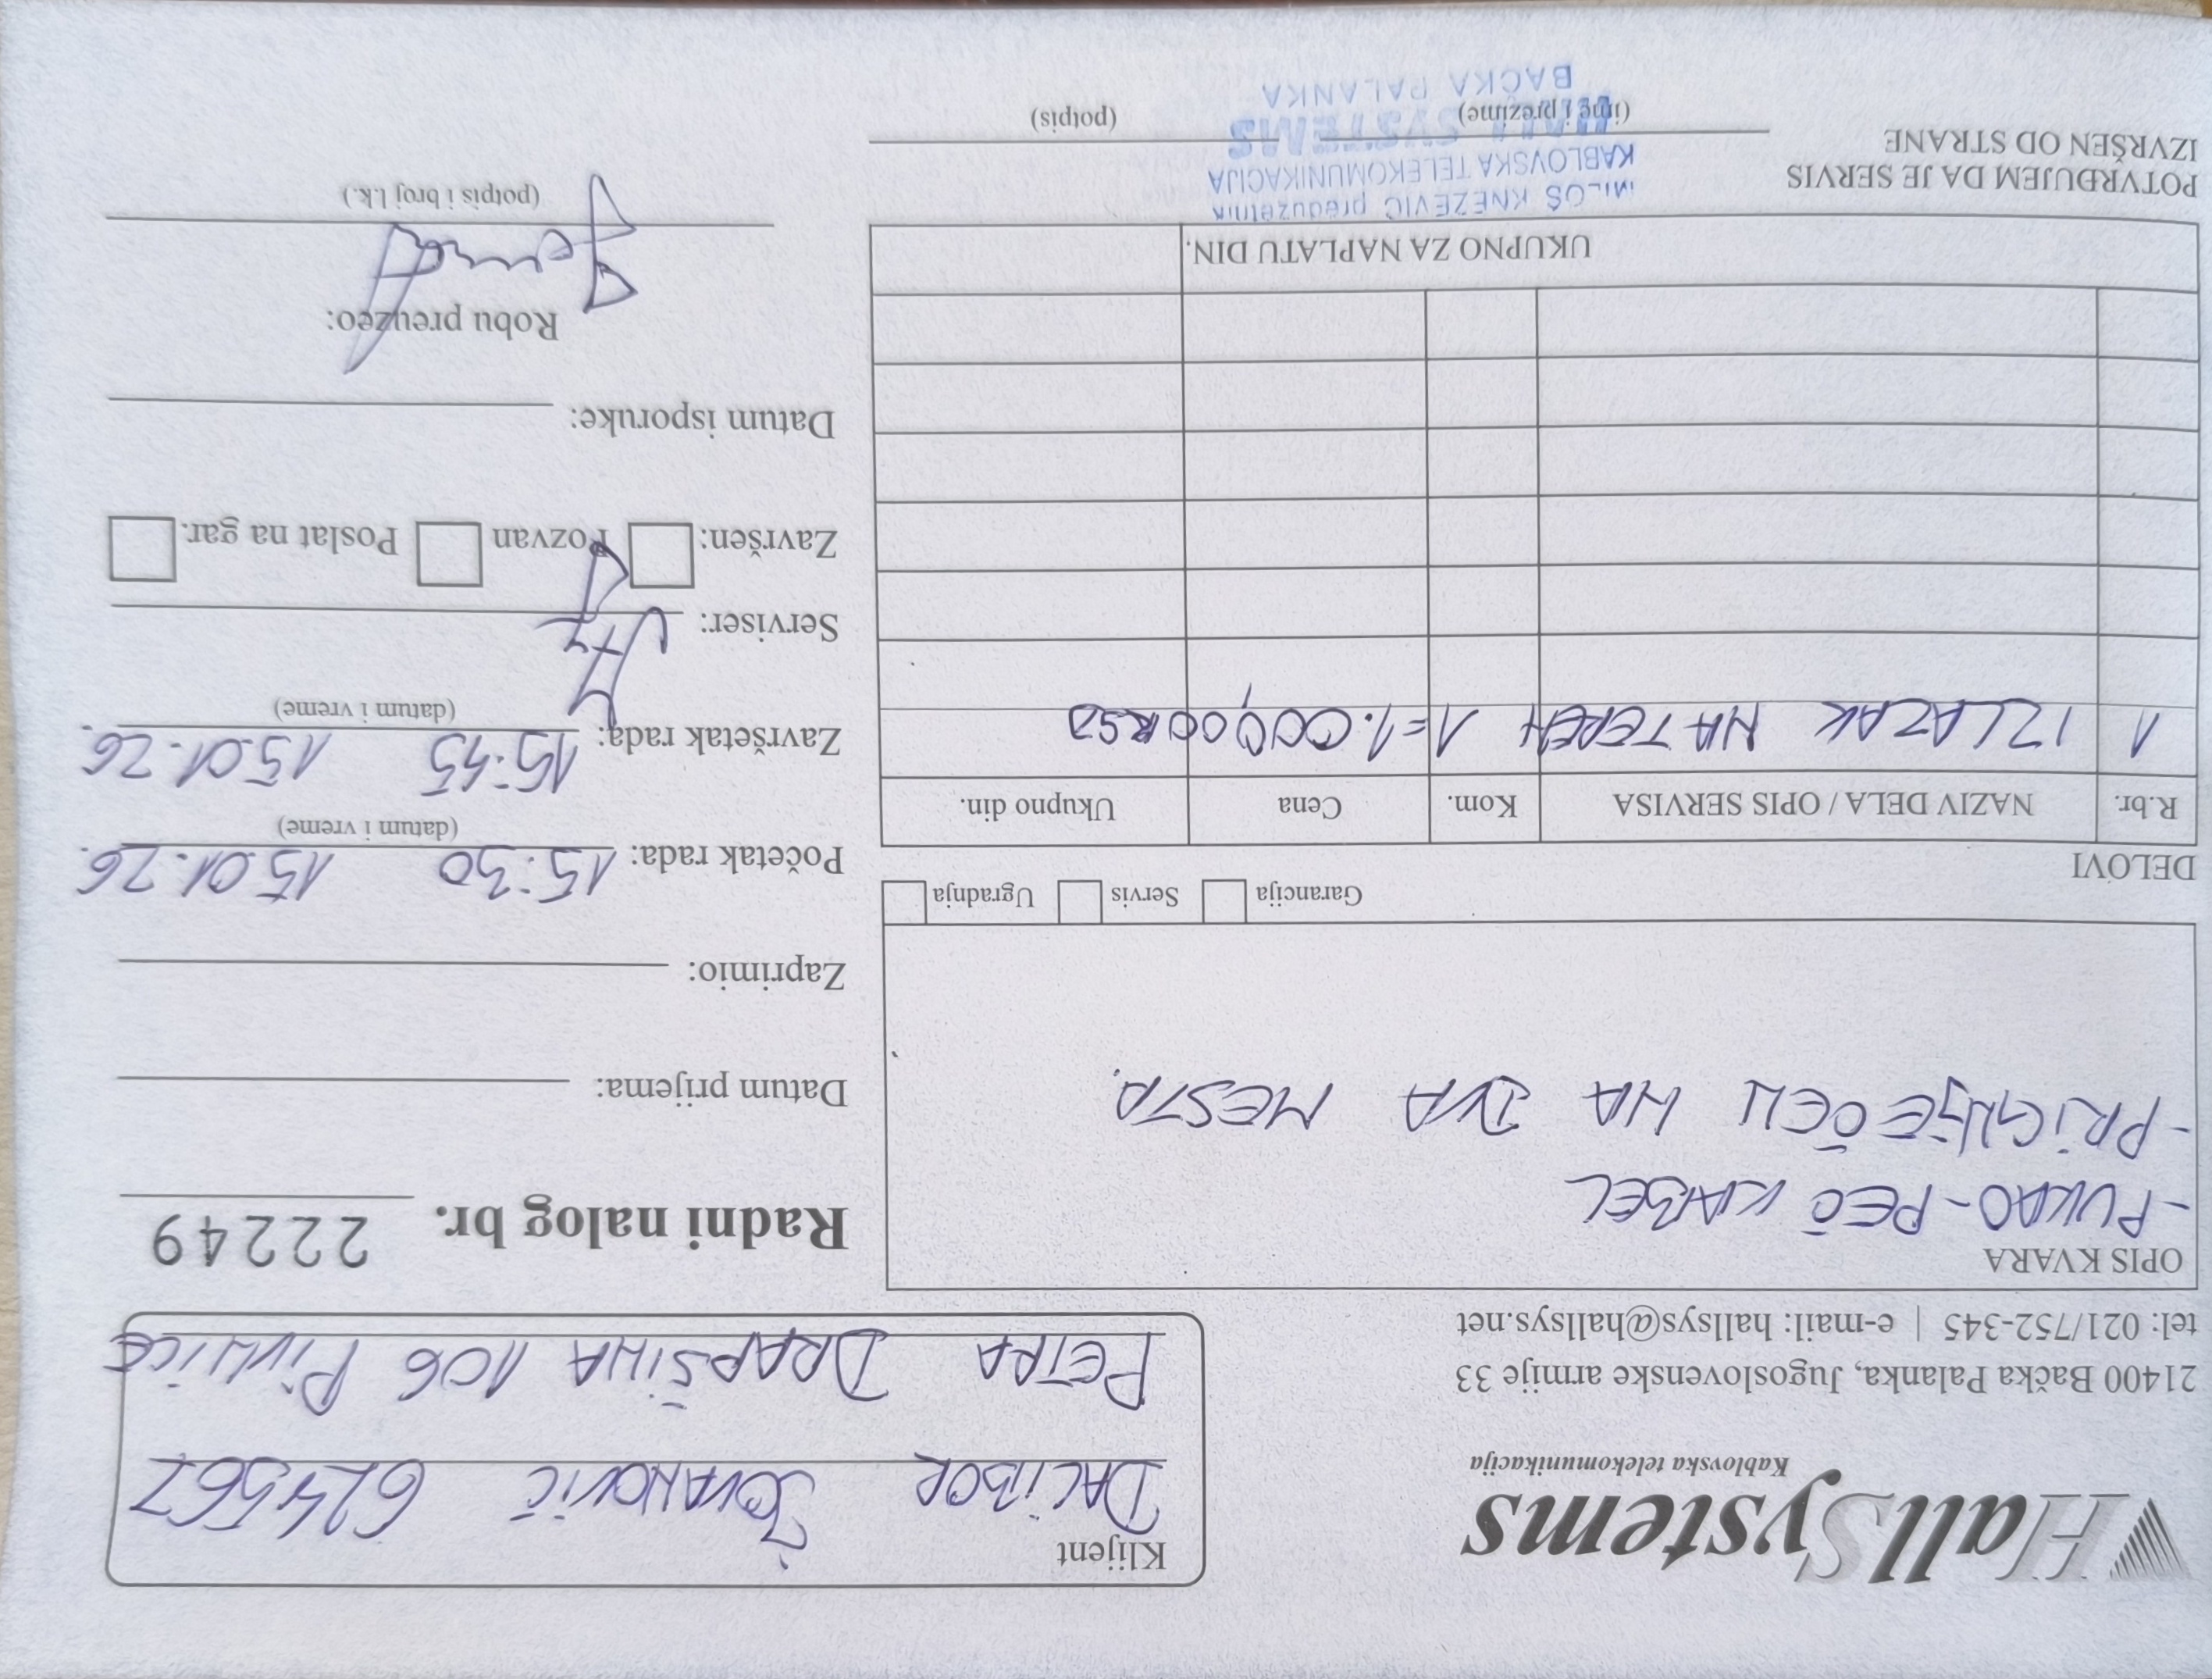 HallSystems
Kablovska telekomunikacija
21400 Bačka Palanka, Jugoslovenske armije 33
tel: 021/752-345 | e-mail: hallsys@hallsys.net
Klijent
DALIBOR JOVANOVIĆ 624567
PETRA DRAPŠINA 106 PIVNICE
OPIS KVARA
-PUKAO-PEČ KABEL
-PRIGNJEČEN NA DVA MESTA.
Garancija Servis Ugradnja
DELOVI
R.br. NAZIV DELA / OPIS SERVISA Kom. Cena Ukupno din.
1 IZLAZAK NA TEREN 1=1.000,00RSD
UKUPNO ZA NAPLATU DIN.
POTVRĐUJEM DA JE SERVIS
IZVRŠEN OD STRANE
(ime i prezime) (potpis)
MILOŠ KNEŽEVIĆ preduzetnik
KABLOVSKA TELEKOMUNIKACIJA
HALL SYSTEMS
BAČKA PALANKA
Radni nalog br. 22249
Datum prijema:
Zaprimio:
Početak rada: 15:30 15.01.26.
(datum i vreme)
Završetak rada: 15:45 15.01.26.
(datum i vreme)
Serviser:
Završen: Pozvan Poslat na gar.
Datum isporuke:
Robu preuzeo:
(potpis i broj l.k.)